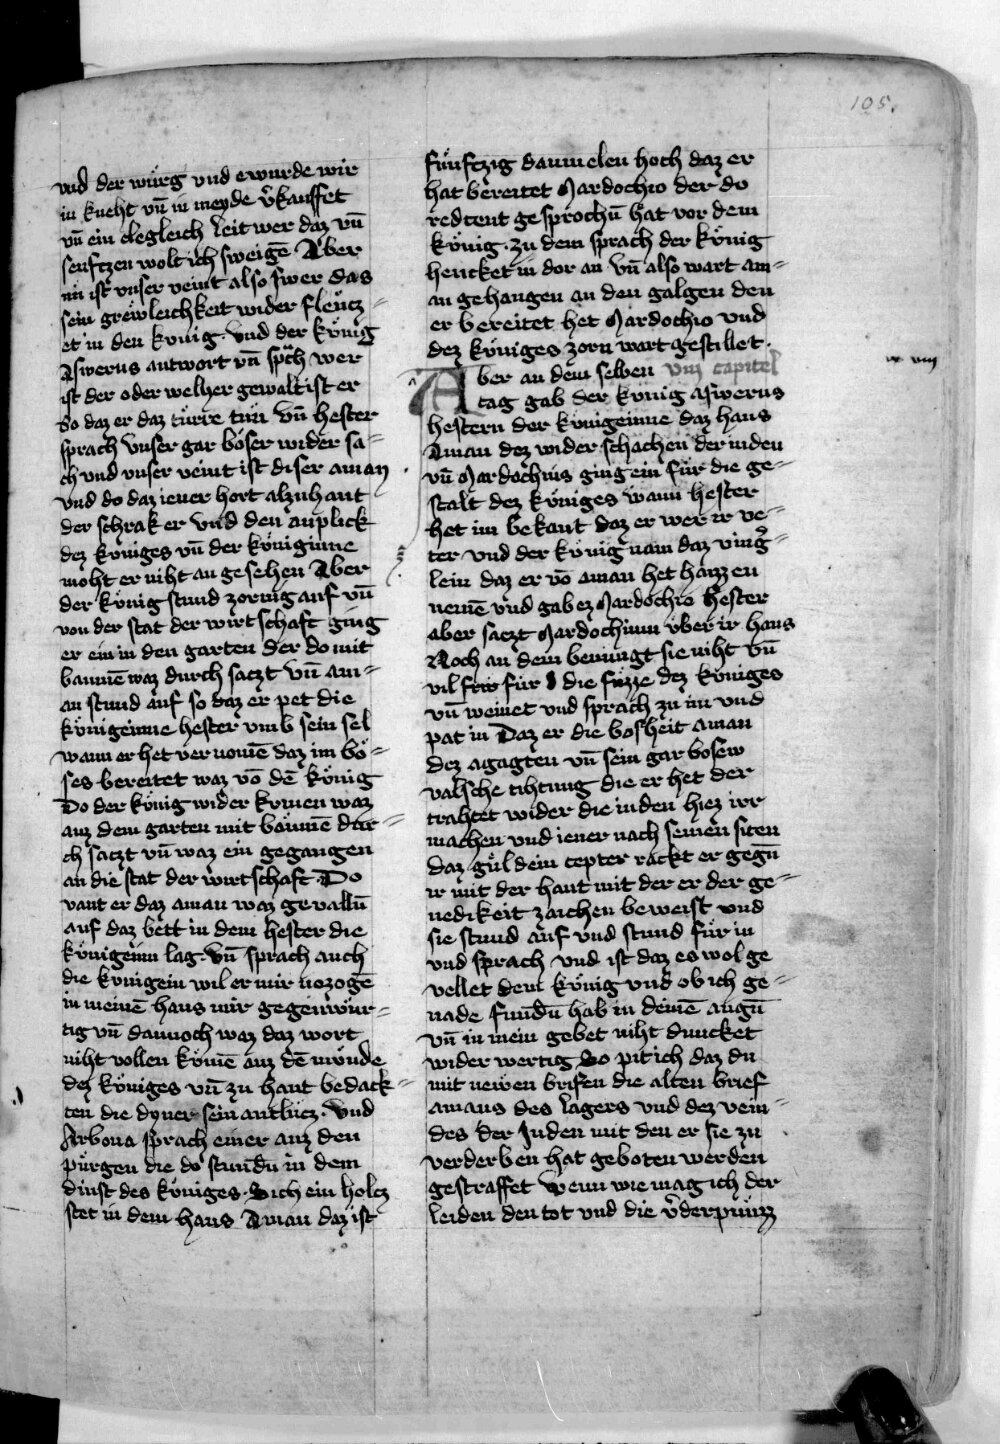 105.
vnd der würg vnd ewurde wir
in kneht vn̄ in meyde v̄kauffet
vn̄ ein clegleich leit wer daz vn̄
seuftzen wolt ich sweigē Aber
nu ist vnser veint also swer das
sein grewleichkeit wider fleücz-
et in den kunig. Vnd der künig
Aswerus antwort vn̄ spͣch wer
ist der oder welher gewalt ist er
So daz er daz türre tun vn̄ hester
sprach Vnser gar böser wider sa-
ch vnd vnser veint ist diser aman
vnd do daz iener hort alzuhant
der schrak er vnd den anplick
dez küniges vn̄ der küniginne
moht er niht an gesehen Aber
der künig stund zornig auf vn̄
von der stat der wirtschaft ging
er ein in den garten der do mit
baumē waz durch saczt vn̄ am-
an stund auf so daz er pet die
künigeinne hester vmb sein sel
wann er het vernomē daz im bö-
ses bereitet waz vō dē künig
Do der künig wider kumen waz
auz dem garten mit baümē dur-
ch saczt vn̄ waz ein gegangen
an die stat der wirtschaft Do
vant er daz aman waz gevallū
auf daz bett in dem hester die
künigeinn lag. Vn̄ sprach auch
die künigein wil er mir nozogē
in meinē haus mir gegenwür-
tig vn̄ dannoch waz daz wort
niht vollen kömē auz dē munde
dez küniges vn̄ zu hant bedack-
ten die dyner sein antlücz. Vnd
Arbona sprach einer auz den
pürgen die do stundū in dem
dinst des küniges. Sich ein holcz
stet in dem haus Aman daz ist
fünftzig daumelen hoch daz er
hat bereitet Mardochio der do
redtent gesprochū hat vor dem
künig. zu dem sprach der künig
hencket in dor an vn̄ also wart am-
an gehangen an den galgen den
er bereitet het Mardochio vnd
dez küniges zorn wart gestillet.
Aber an dem selben viij capitel
tag gab der künig aswerus
hestern der künigeinne daz haus
Aman dez wider schachen der iuden
vn̄ Mardocheus ging ein für die ge-
stalt dez küniges wann hester
het im bekant daz er wer ir ve-
ter vnd der künig nam daz ving̉-
lein daz er vō aman het haizzen
nemē vnd gab ez Mardochio hester
aber saczt Mardochium über ir haus
Noch an dem benüngt sie niht vn̄
vil für die füzze dez küniges
vn̄ weinet vnd sprach zu im vnd
pat in Daz er die bosheit aman
dez agagten vn̄ sein gar bosew
valsche tihtung die er het der
trahtet wider die iuden hiez irr
machen vnd iener nach seinen siten
daz güldein cepter rackt er gegū
ir mit der hant mit der er der ge-
nedikeit zaichen beweist vnd
sie stund auf vnd stund für in
vnd sprach vnd ist daz es wol ge
vellet dem künig vnd ob ich ge-
nade fundū hab in deinē augū
vn̄ in mein gebet niht duncket
wider wertig So pit ich daz du
mit newen brifen die alten brief
amans des lagers vnd dez vein-
des der Juden mit den er sie zu
verderben hat geboten werden
gestraffet Wenn wie mag ich der
leiden den tot vnd die v̄derpnüzz